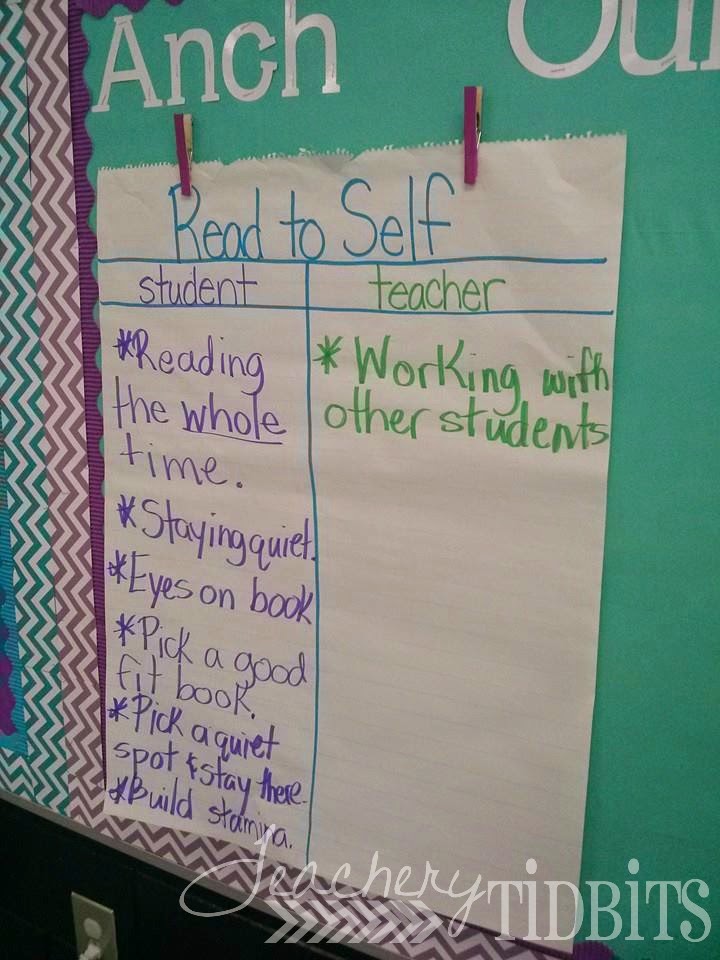 Anch Our
Read to Self
student teacher
*Reading
the whole
time.
*Staying quiet.
*Eyes on book
*Pick a good
fit book.
*Pick a quiet
spot & stay there.
*Build stamina.
* Working with
other students
Teachery TiDBiTS